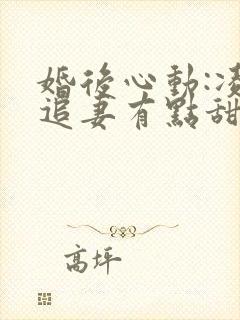 婚後心動:凌
追妻有點甜
高坪